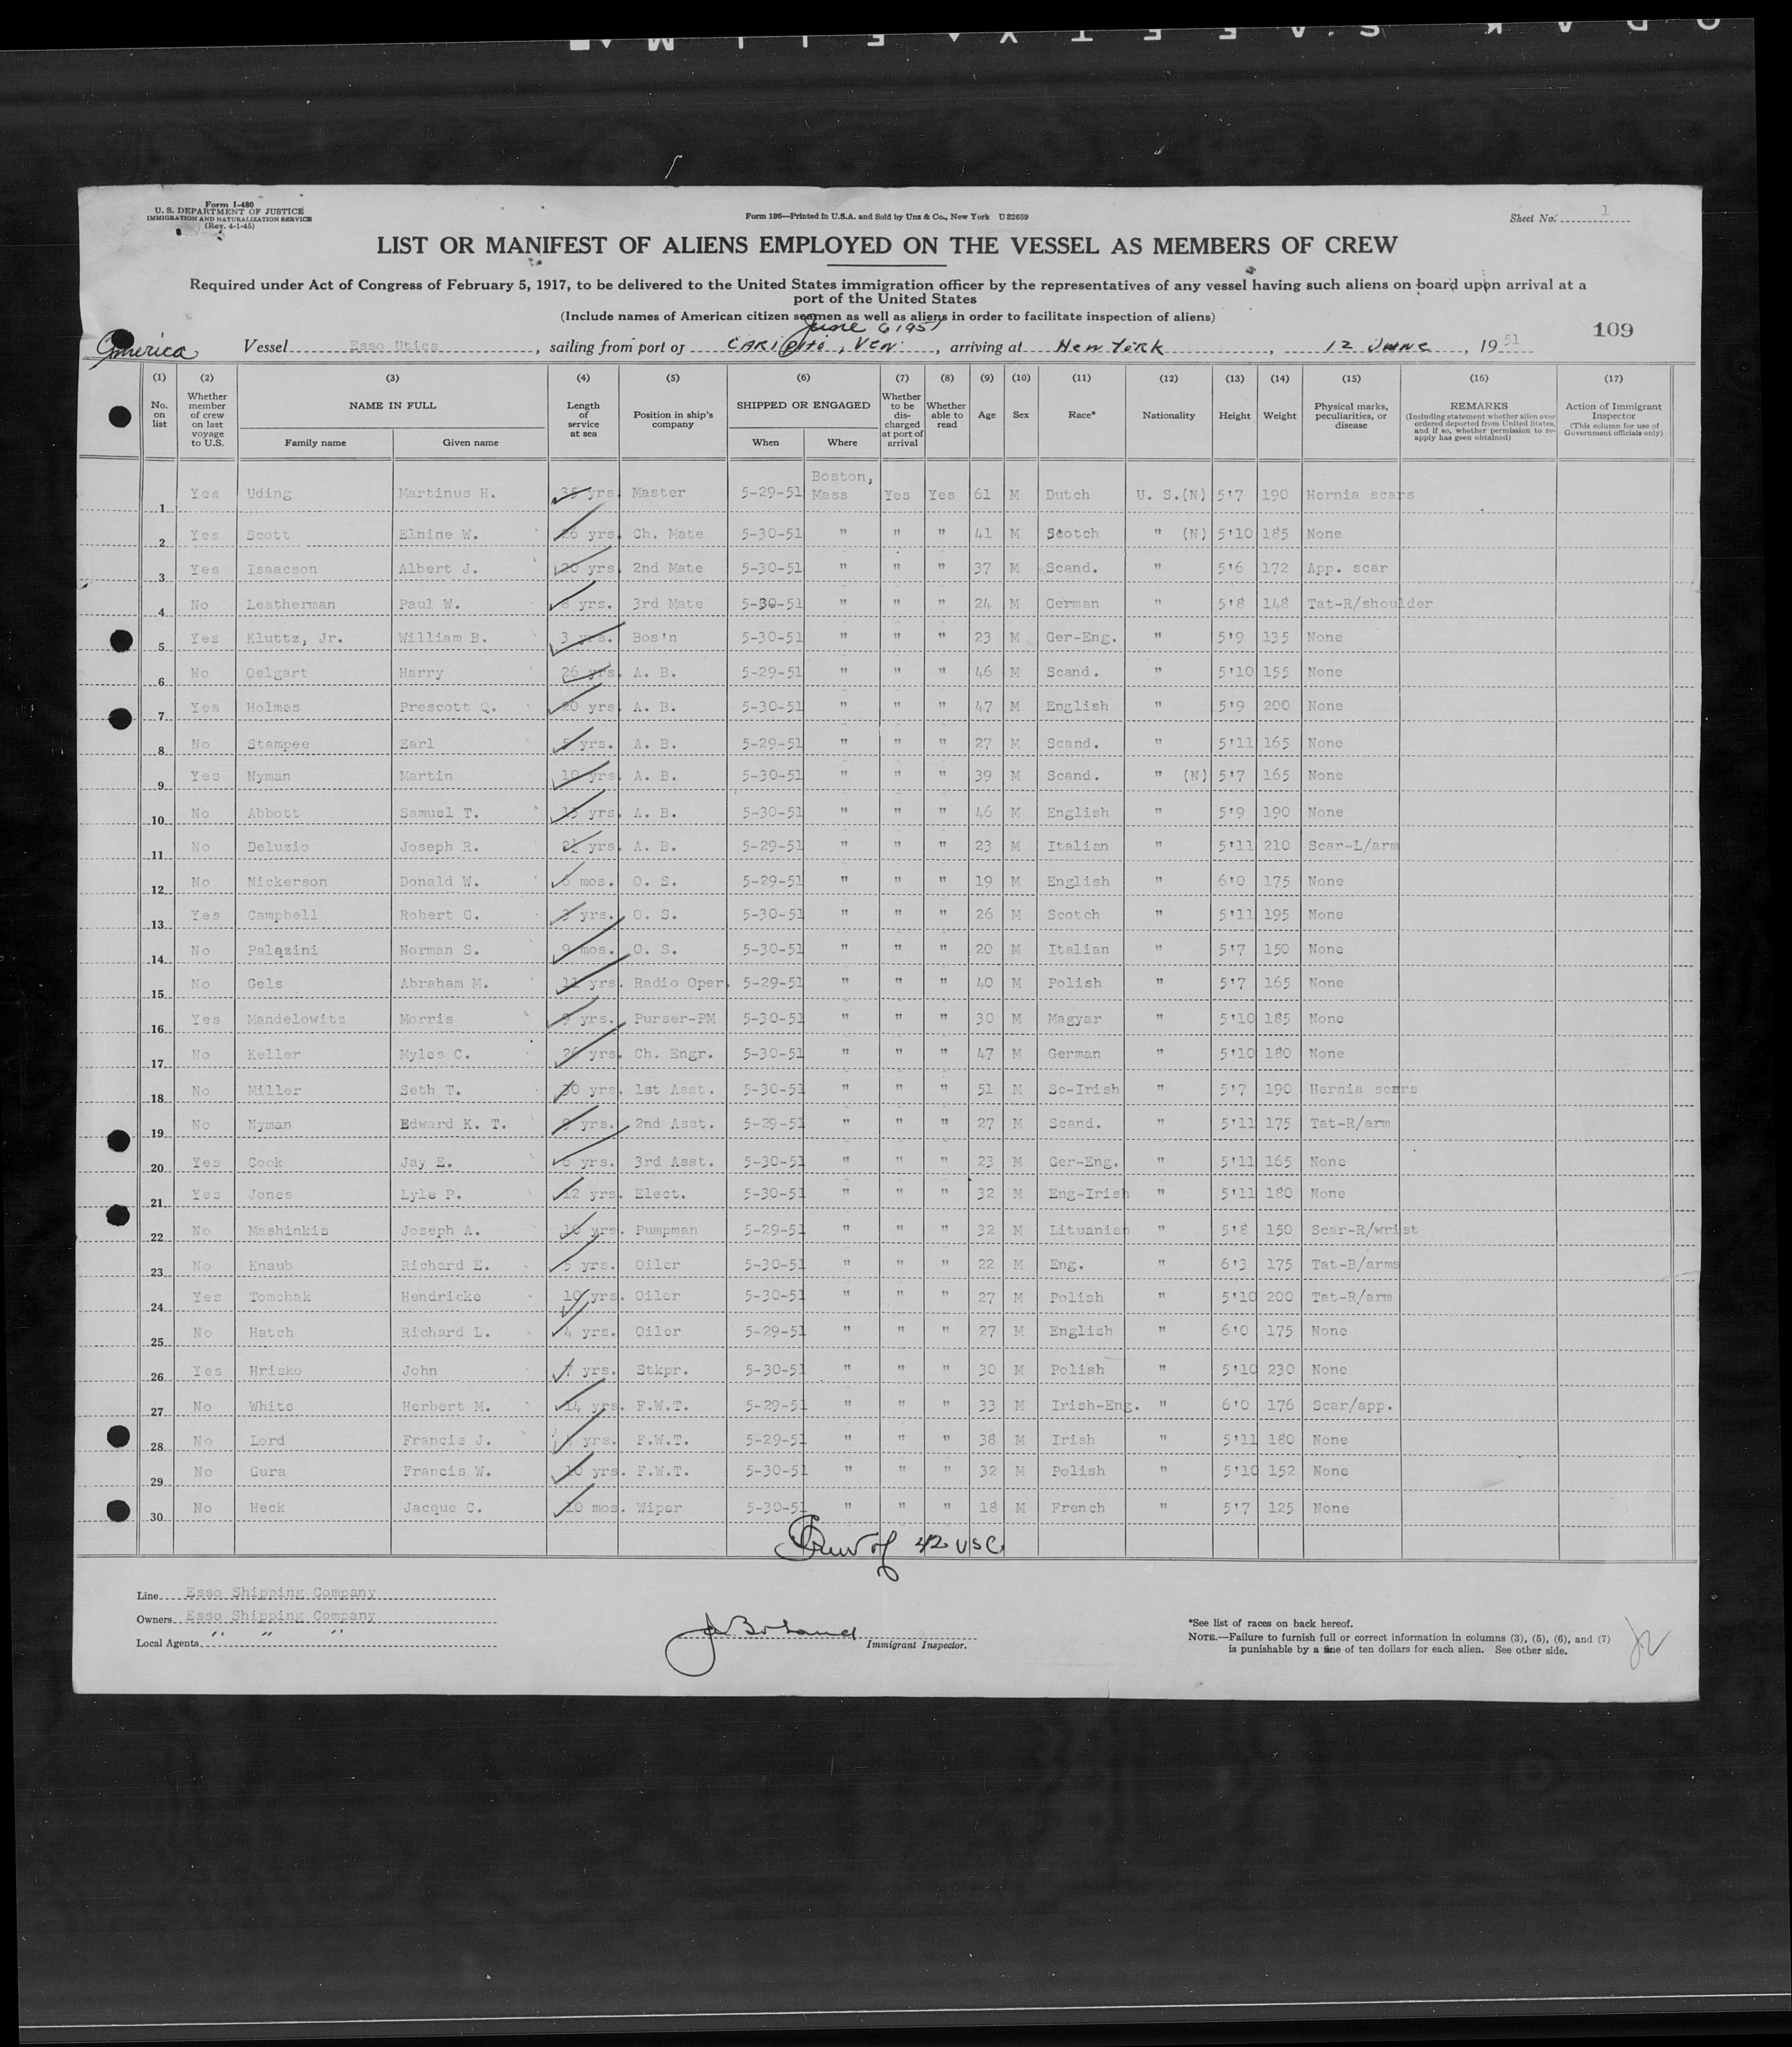 KODAK SAFETY FILM
Form I-480
U. S. DEPARTMENT OF JUSTICE
IMMIGRATION AND NATURALIZATION SERVICE
(Rev. 4-1-45)
Form 186—Printed in U.S.A. and Sold by Unz & Co., New York U 32659
Sheet No. 1
LIST OR MANIFEST OF ALIENS EMPLOYED ON THE VESSEL AS MEMBERS OF CREW
Required under Act of Congress of February 5, 1917, to be delivered to the United States immigration officer by the representatives of any vessel having such aliens on board upon arrival at a
port of the United States
(Include names of American citizen seamen as well as aliens in order to facilitate inspection of aliens)
June 6 1951
109
America Vessel Esso Utica, sailing from port of CARIPITO, VEN., arriving at New York, 12 June, 1951
(1) (2) (3) (4) (5) (6) (7) (8) (9) (10) (11) (12) (13) (14) (15) (16) (17)
No. on list
Whether member of crew on last voyage to U.S.
NAME IN FULL
Family name Given name
Length of service at sea
Position in ship's company
SHIPPED OR ENGAGED
When Where
Whether to be discharged at port of arrival
Whether able to read
Age Sex Race* Nationality Height Weight
Physical marks, peculiarities, or disease
REMARKS
(Including statement whether alien ever ordered deported from United States, and if so, whether permission to re-apply has geen obtained)
Action of Immigrant Inspector
(This column for use of Government officials only)
1 Yes Uding Martinus H. 35 yrs. Master 5-29-51 Boston, Mass Yes Yes 61 M Dutch U. S.(N) 5'7 190 Hernia scars
2 Yes Scott Elnine W. 26 yrs. Ch. Mate 5-30-51 " " " 41 M Scotch " (N) 5'10 185 None
3 Yes Isaacson Albert J. 20 yrs. 2nd Mate 5-30-51 " " " 37 M Scand. " 5'6 172 App. scar
4 No Leatherman Paul W. 6 yrs. 3rd Mate 5-30-51 " " " 24 M German " 5'8 148 Tat-R/shoulder
5 Yes Kluttz, Jr. William B. 3 yrs. Bos'n 5-30-51 " " " 23 M Ger-Eng. " 5'9 135 None
6 No Oelgart Harry 26 yrs. A. B. 5-29-51 " " " 46 M Scand. " 5'10 155 None
7 Yes Holmes Prescott Q. 20 yrs. A. B. 5-30-51 " " " 47 M English " 5'9 200 None
8 No Stampee Earl yrs. A. B. 5-29-51 " " " 27 M Scand. " 5'11 165 None
9 Yes Nyman Martin 10 yrs. A. B. 5-30-51 " " " 39 M Scand. " (N) 5'7 165 None
10 No Abbott Samuel T. 15 yrs. A. B. 5-30-51 " " " 46 M English " 5'9 190 None
11 No Deluzio Joseph R. 2½ yrs. A. B. 5-29-51 " " " 23 M Italian " 5'11 210 Scar-L/arm
12 No Nickerson Donald W. mos. O. S. 5-29-51 " " " 19 M English " 6'0 175 None
13 Yes Campbell Robert G. 3 yrs. O. S. 5-30-51 " " " 26 M Scotch " 5'11 195 None
14 No Palazini Norman S. 9 mos. O. S. 5-30-51 " " " 20 M Italian " 5'7 150 None
15 No Gels Abraham M. 11 yrs. Radio Oper. 5-29-51 " " " 40 M Polish " 5'7 165 None
16 Yes Mandelowitz Morris 9 yrs. Purser-PM 5-30-51 " " " 30 M Magyar " 5'10 185 None
17 No Keller Myles C. 26 yrs. Ch. Engr. 5-30-51 " " " 47 M German " 5'10 180 None
18 No Miller Seth T. 30 yrs. 1st Asst. 5-30-51 " " " 51 M Sc-Irish " 5'7 190 Hernia scars
19 No Nyman Edward K. T. yrs. 2nd Asst. 5-29-51 " " " 27 M Scand. " 5'11 175 Tat-R/arm
20 Yes Cook Jay E. 6 yrs. 3rd Asst. 5-30-51 " " " 23 M Ger-Eng. " 5'11 165 None
21 Yes Jones Lyle P. 12 yrs. Elect. 5-30-51 " " " 32 M Eng-Irish " 5'11 180 None
22 No Mashinkis Joseph A. 10 yrs. Pumpman 5-29-51 " " " 32 M Lituanian " 5'8 150 Scar-R/wrist
23 No Knaub Richard E. 5 yrs. Oiler 5-30-51 " " " 22 M Eng. " 6'3 175 Tat-B/arms
24 Yes Tomchak Hendricke 10 yrs. Oiler 5-30-51 " " " 27 M Polish " 5'10 200 Tat-R/arm
25 No Hatch Richard L. 4 yrs. Oiler 5-29-51 " " " 27 M English " 6'0 175 None
26 Yes Hrisko John 7 yrs. Stkpr. 5-30-51 " " " 30 M Polish " 5'10 230 None
27 No White Herbert M. 14 yrs. F.W.T. 5-29-51 " " " 33 M Irish-Eng. " 6'0 176 Scar/app.
28 No Lord Francis J. yrs. F.W.T. 5-29-51 " " " 38 M Irish " 5'11 180 None
29 No Gura Francis W. 10 yrs. F.W.T. 5-30-51 " " " 32 M Polish " 5'10 152 None
30 No Heck Jacque C. 10 mos. Wiper 5-30-51 " " " 18 M French " 5'7 125 None
Crew of 42 USC
Line Esso Shipping Company
Owners Esso Shipping Company
Local Agents " " "
Immigrant Inspector.
*See list of races on back hereof.
NOTE.—Failure to furnish full or correct information in columns (3), (5), (6), and (7)
is punishable by a fine of ten dollars for each alien. See other side.